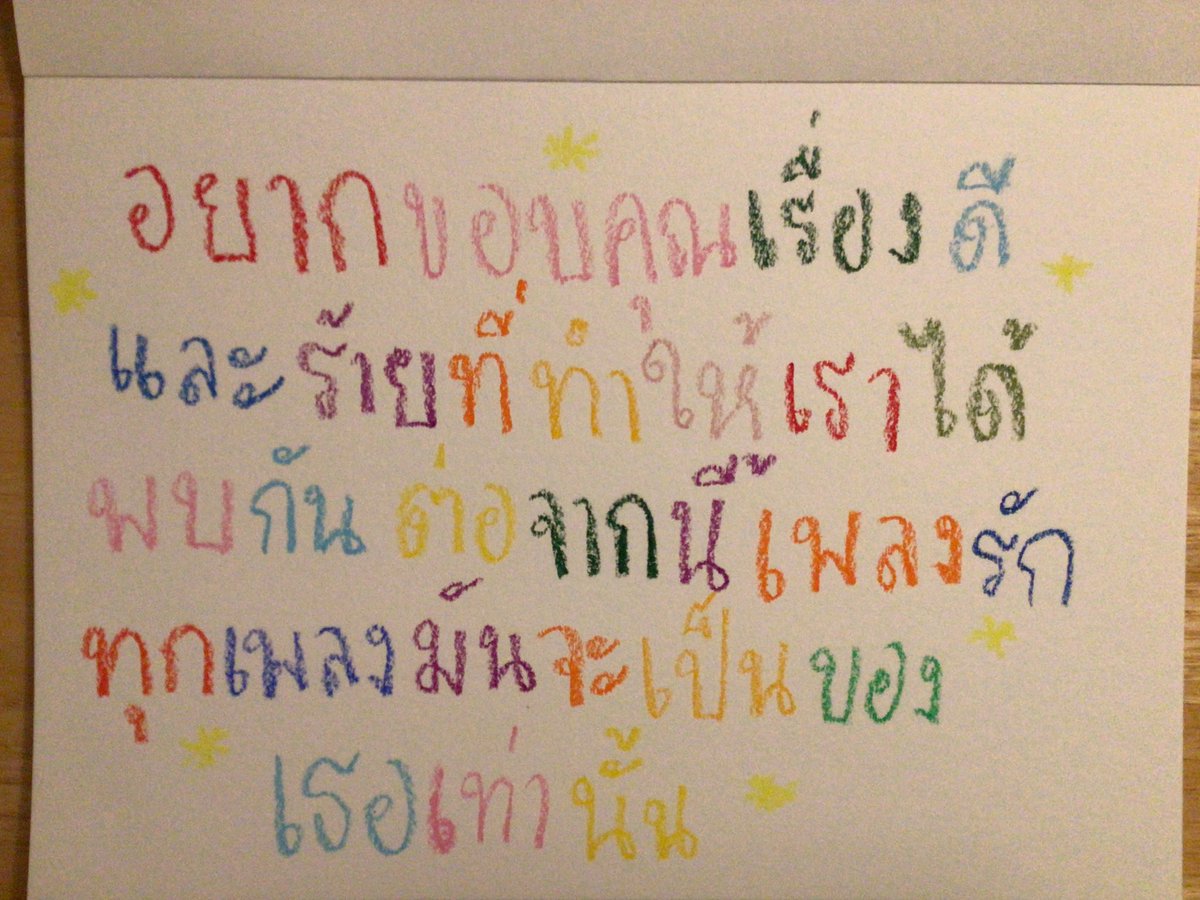 อยากขอบคุณเรื่องดี
และร้ายที่ทำให้เราได้
พบกัน ต่อจากนี้เพลงรัก
ทุกเพลงมันจะเป็นของ
เธอเท่านั้น